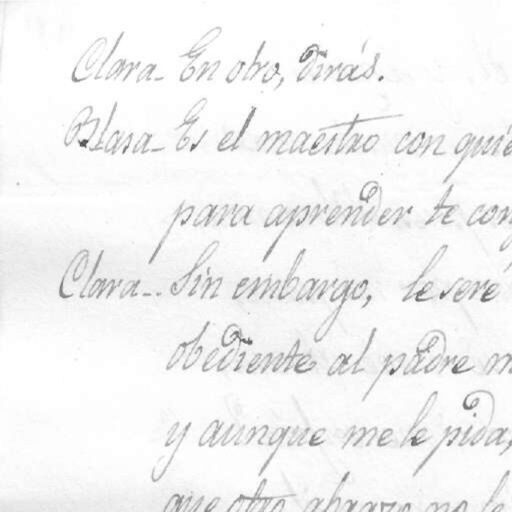 Clara - En otro, dirás.
Blasa - Es el maestro con quié
para aprender te con
Clara - . Sin embargo, le seré
obediente al padre m
y aunque me le pida,
que otro abrazo no le